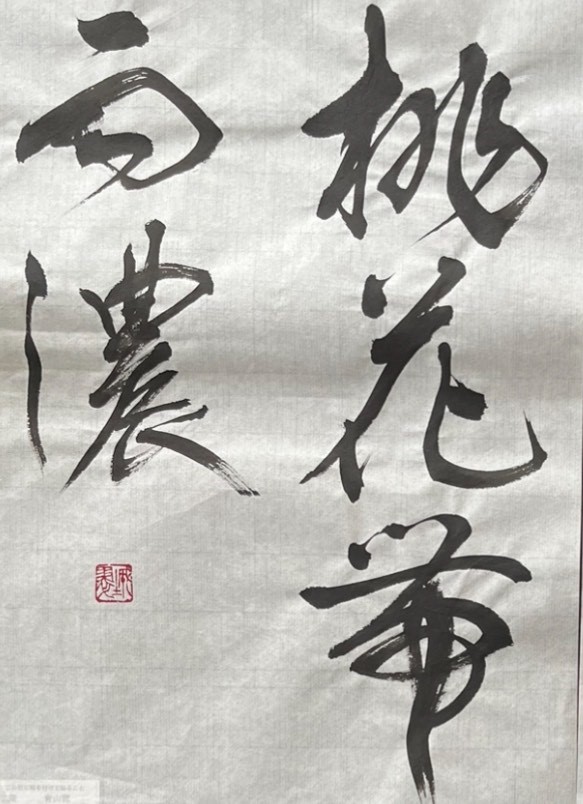 桃花帯
雨濃